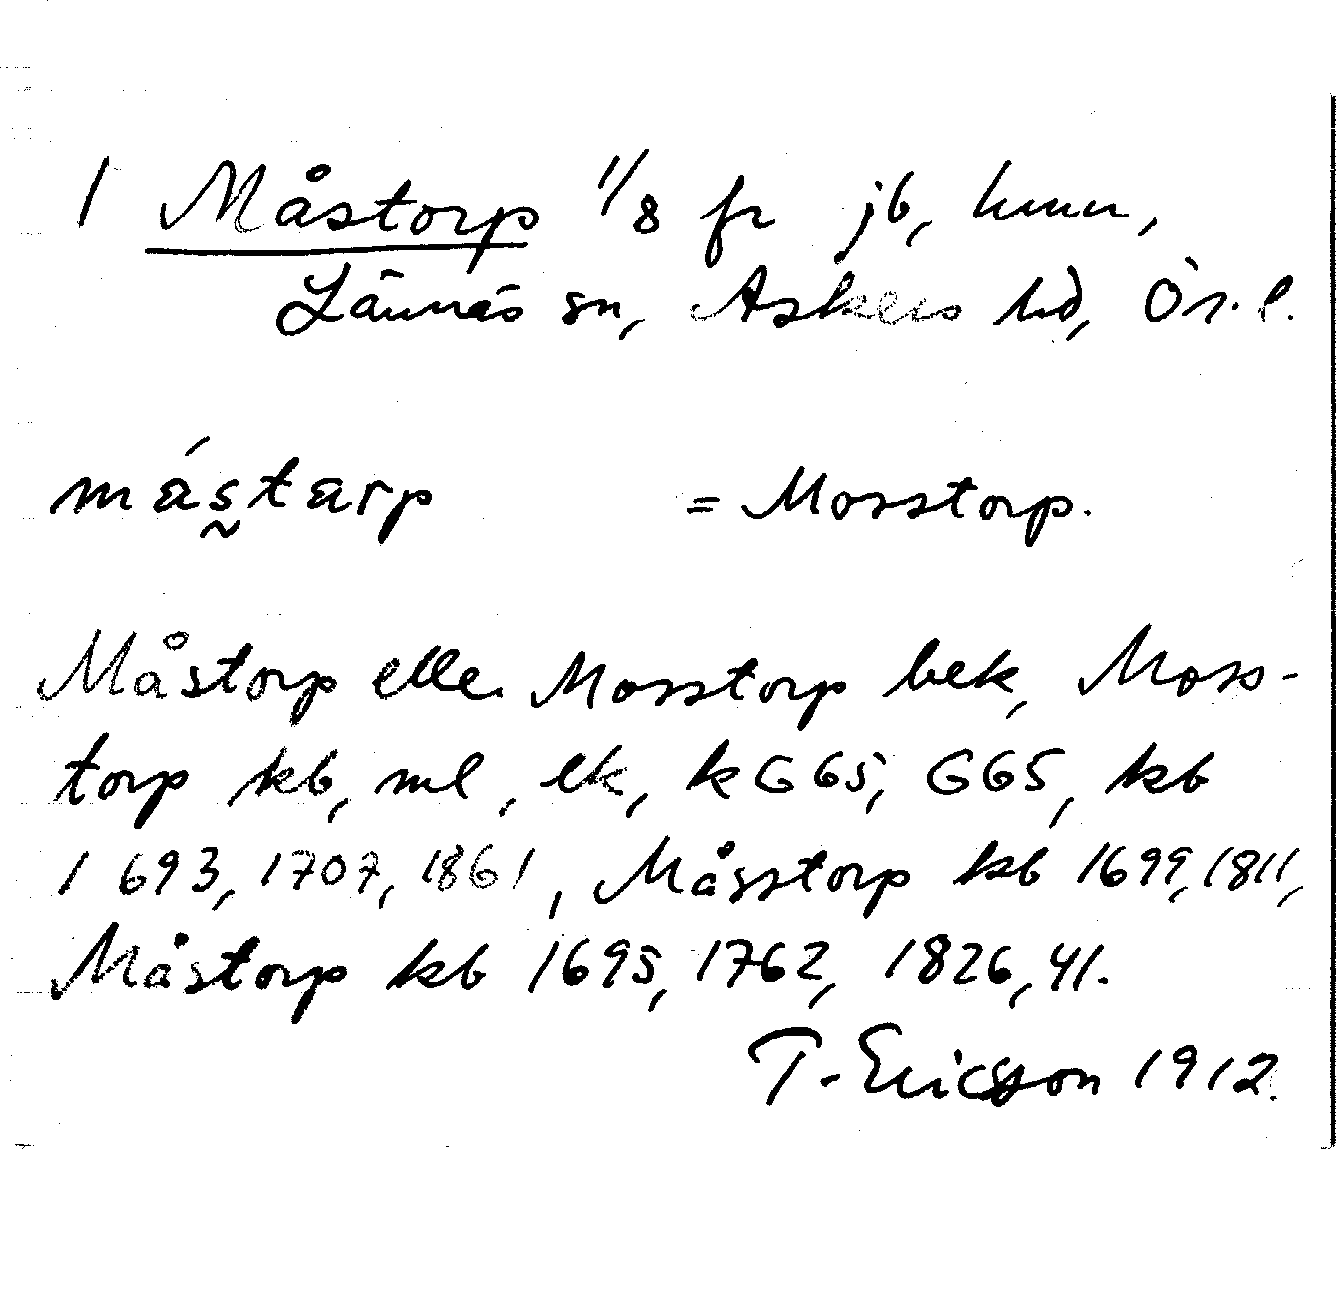 1 Måstorp 1/8 fr jb, hmn,
Lännäs sn, Askers hd, Ör. l.
måstarp = Mosstorp.
Måstorp elle. Mosstorp bek, Moss-
torp kb, ml, ek, k G65, G65, kb
1693, 1707, 1861, Måsstorp kb 1699, 1811,
Måstorp kb 1695, 1762, 1826, 41.
T. Ericsson 1912.